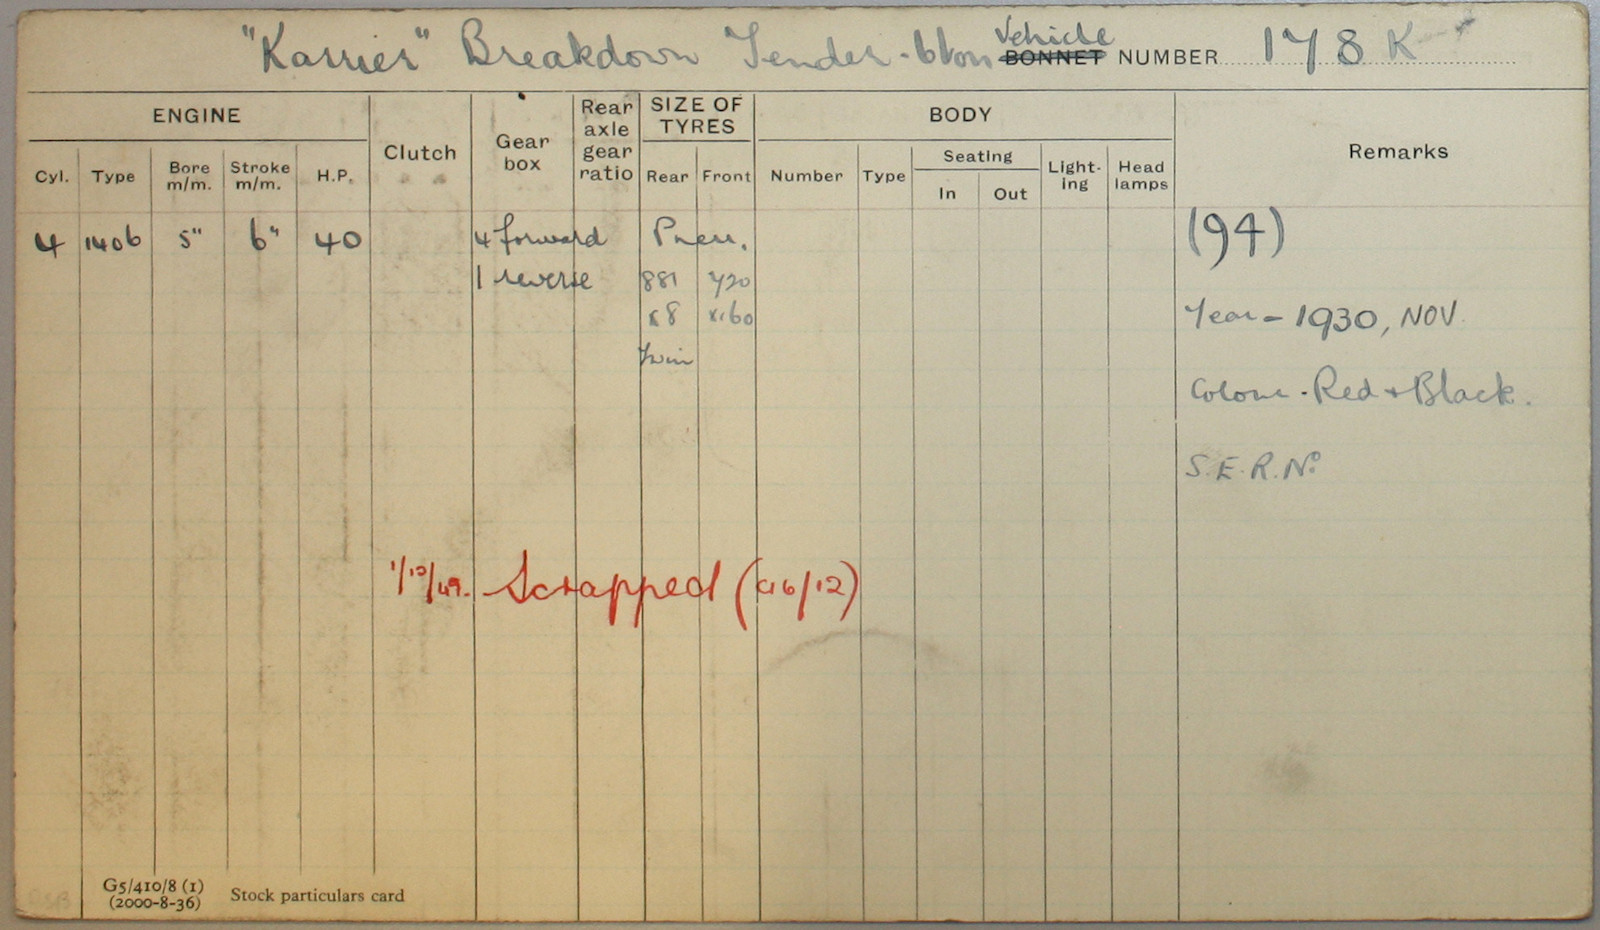 "Karrier" Breakdown Tender - 6 ton Vehicle BONNET NUMBER 178 K
ENGINE Clutch Gear box Rear axle gear ratio SIZE OF TYRES BODY Remarks
Cyl. Type Bore m/m. Stroke m/m. H.P. Rear Front Number Type Seating In Out Light-ing Head lamps
4 1406 5" 6" 40 4 forward Pneu. (94)
1 reverse 881 720
x8 x160 Year - 1930, NOV.
Twin
Colour - Red + Black.
S.E.R. No
1/12/49. Scrapped (46/12)
G5/410/8 (1)
(2000-8-36) Stock particulars card